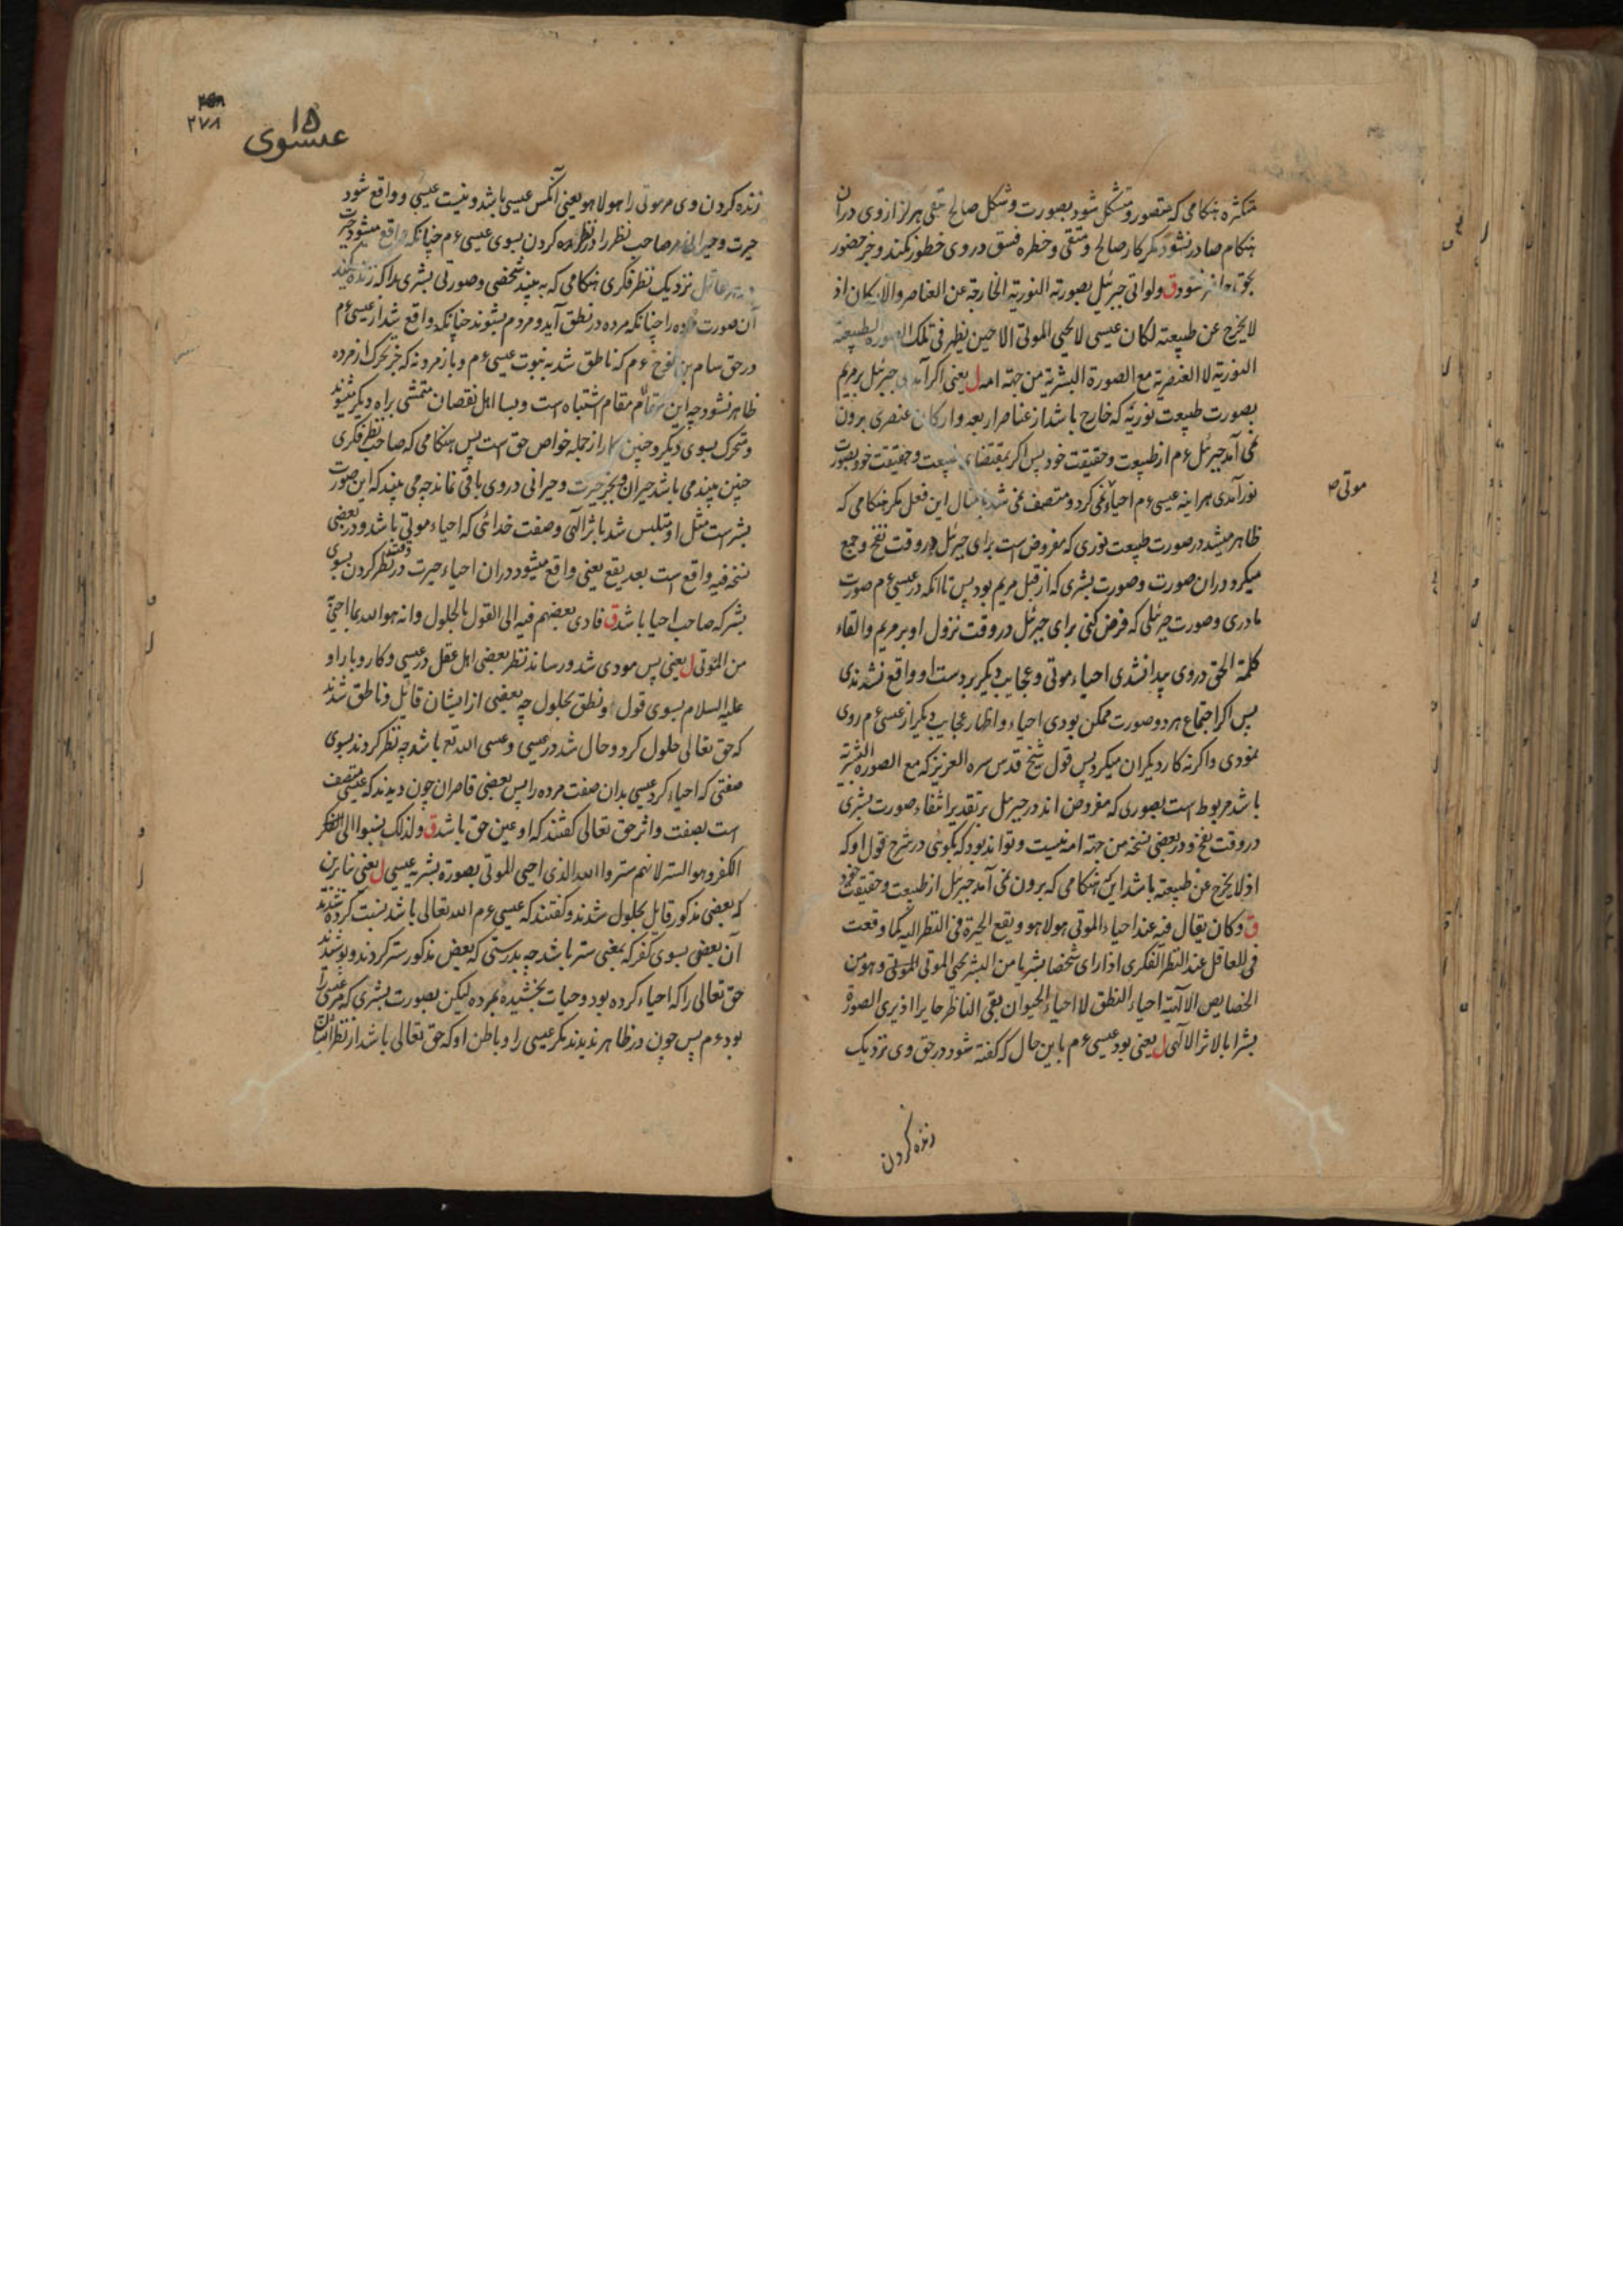 متکثره هنکامی که متصور و متشکل شود بصورت و شکل صالح متقی هرکز از وی دران
هنکام صادر نشود مکر کار صالح و متقی و خطره فسق در وی خطور نکند و جز حضور
بحق نشود ق ولو اتی جبرئیل بصورته النوریة الخارجة عن العناصر والارکان اذ
لا یخرج عن طبیعته لکان عیسی لا یحیی الموتی الا حین یظهر فی تلک الصورة الطبیعیة
النوریة لا العنصریة مع الصورة البشریة من جهة امه ل یعنی اکر آمدی جبرئیل بر مریم
بصورت طبیعت نوریه که خارج باشد از عناصر اربعه و ارکان عنصری برون
نمی آمد جبرئیل ءم از طبیعت و حقیقت خود پس اکر بمقتضای طبیعت و حقیقت خود بصورت
نور آمدی هراینه عیسی ءم احیاء نمی کرد و متصف نمی شد این فعل مکر هنکامی که
موتی صـ
ظاهر میشد در صورت طبیعت نوری که مفروض است برای جبرئیل در وقت نفخ و جمع
میکرد دران صورت و صورت بشری که از قبل مریم بود پس تا انکه در عیسی ءم صورت
مادری و صورت جبرئیلی که فرض کنی برای جبرئیل در وقت نزول او بر مریم و القاء
کلمة الحق در وی پیدا نشدی احیاء موتی و عجایب دیکر بر دست او واقع نشدندی
پس اکر اجتماع هر دو صورت ممکن بودی احیاء و اظهار عجایب دیکر از عیسی ءم روی
نمودی و اکرنه کار دیکران میکرد پس قول شیخ قدس سره العزیز که مع الصورة البشریة
باشد مربوط است بصوری که مفروض اند در جبرئیل بر تقدیر انتفاء صورت بشری
در وقت نفخ و در بعضی نسخه من جهة امه نیست و تواند بود که بکوئی در شرح قول او که
اذ لا یخرج عن طبیعته باشد این هنکامی که برون نمی آمد جبرئیل از طبیعت و حقیقت خود
ق وکان یقال فیه عند احیاء الموتی هو لا هو و یقع الحیرة فی النظر الیه کما وقعت
فی العاقل عند النظر الفکری اذا رای شخصا بشریا من البشر یحیی الموتی و هو من
الخصایص الالهیة احیاء النطق لا احیاء الحیوان بقی الناظر حایرا اذ یری الصورة
بشرا بالاثر الالهی ل یعنی بود عیسی ءم باین حال که کفته شود در حق وی نزدیک
زنده کردن
۲۷۸
۱۵
عیسوی
زنده کردن وی مر موتی را هو لا هو یعنی آنکس عیسی باشد و نیست عیسی و واقع شود
حیرت و حیرانی مر صاحب نظر را در نظر کردن بسوی عیسی ءم چنانکه واقع میشود حیرت
مر عاقل نزدیک نظر فکری هنکامی که به بیند شخصی و صورتی بشری را که زنده میکند
آن صورت مرده را چنانکه مرده در نطق آید و مردم بشنوند چنانکه واقع شد از عیسی ءم
در حق سام بن نوح ءم که ناطق شد به نبوت عیسی ءم و باز مرد نه که جز تحرک از مرده
ظاهر نشود چه این مقام مقام اشتباه است و بسا اهل نقصان متمشی براه دیکر میشوند
و متحرک بسوی دیکر و چنین کار از جمله خواص حق است پس هنکامی که صاحب نظر فکری
چنین بیند می باشد حیران و بجز حیرت و حیرانی در وی باقی نماند چه می بیند که این صورت
بشر است مثل او متلبس شد باثر الهی و صفت خدائی که احیاء موتی باشد و در بعضی
نسخه فیه واقع است بعد یقع یعنی واقع میشود دران احیاء حیرت در وقت نظر کردن بسوی
بشر که صاحب احیا باشد ق فادی بعضهم فیه الی القول بالحلول وانه هو الله بما احیی به
من الموتی ل یعنی پس مودی شد و رساند نظر بعضی اهل عقل در عیسی و کار و بار او
علیه السلام بسوی قول و نطق بحلول چه بعضی از ایشان قایل و ناطق شدند
که حق تعالی حلول کرد و حال شد در عیسی و عیسی الله تعـ باشد چه نظر کردند بسوی
صفتی که احیاء کرد عیسی بدان صفت مرده را پس بعضی قاصران چون دیدند که عیسی متصف
است بصفت و اثر حق تعالی کفتند که او عین حق باشد ق ولذلک نسبوا الی الکفر
الکفر وهو الستر لانهم ستروا الله الذی احیی الموتی بصورة بشریة عیسی ل یعنی بنابرین
که بعضی مذکور قایل بحلول شدند و کفتند که عیسی ءم الله تعالی باشد نسبت کرده شدند
آن بعضی بسوی کفر که بمعنی ستر باشد چه بدرستی که بعض مذکور ستر کردند و پوشیدند
حق تعالی را که احیاء کرده بود و حیات بخشیده بمرده لیکن بصورت بشری که مر عیسی را
بود ءم پس چون در ظاهر ندیدند مکر عیسی را و باطن او که حق تعالی باشد از نظر ایشان